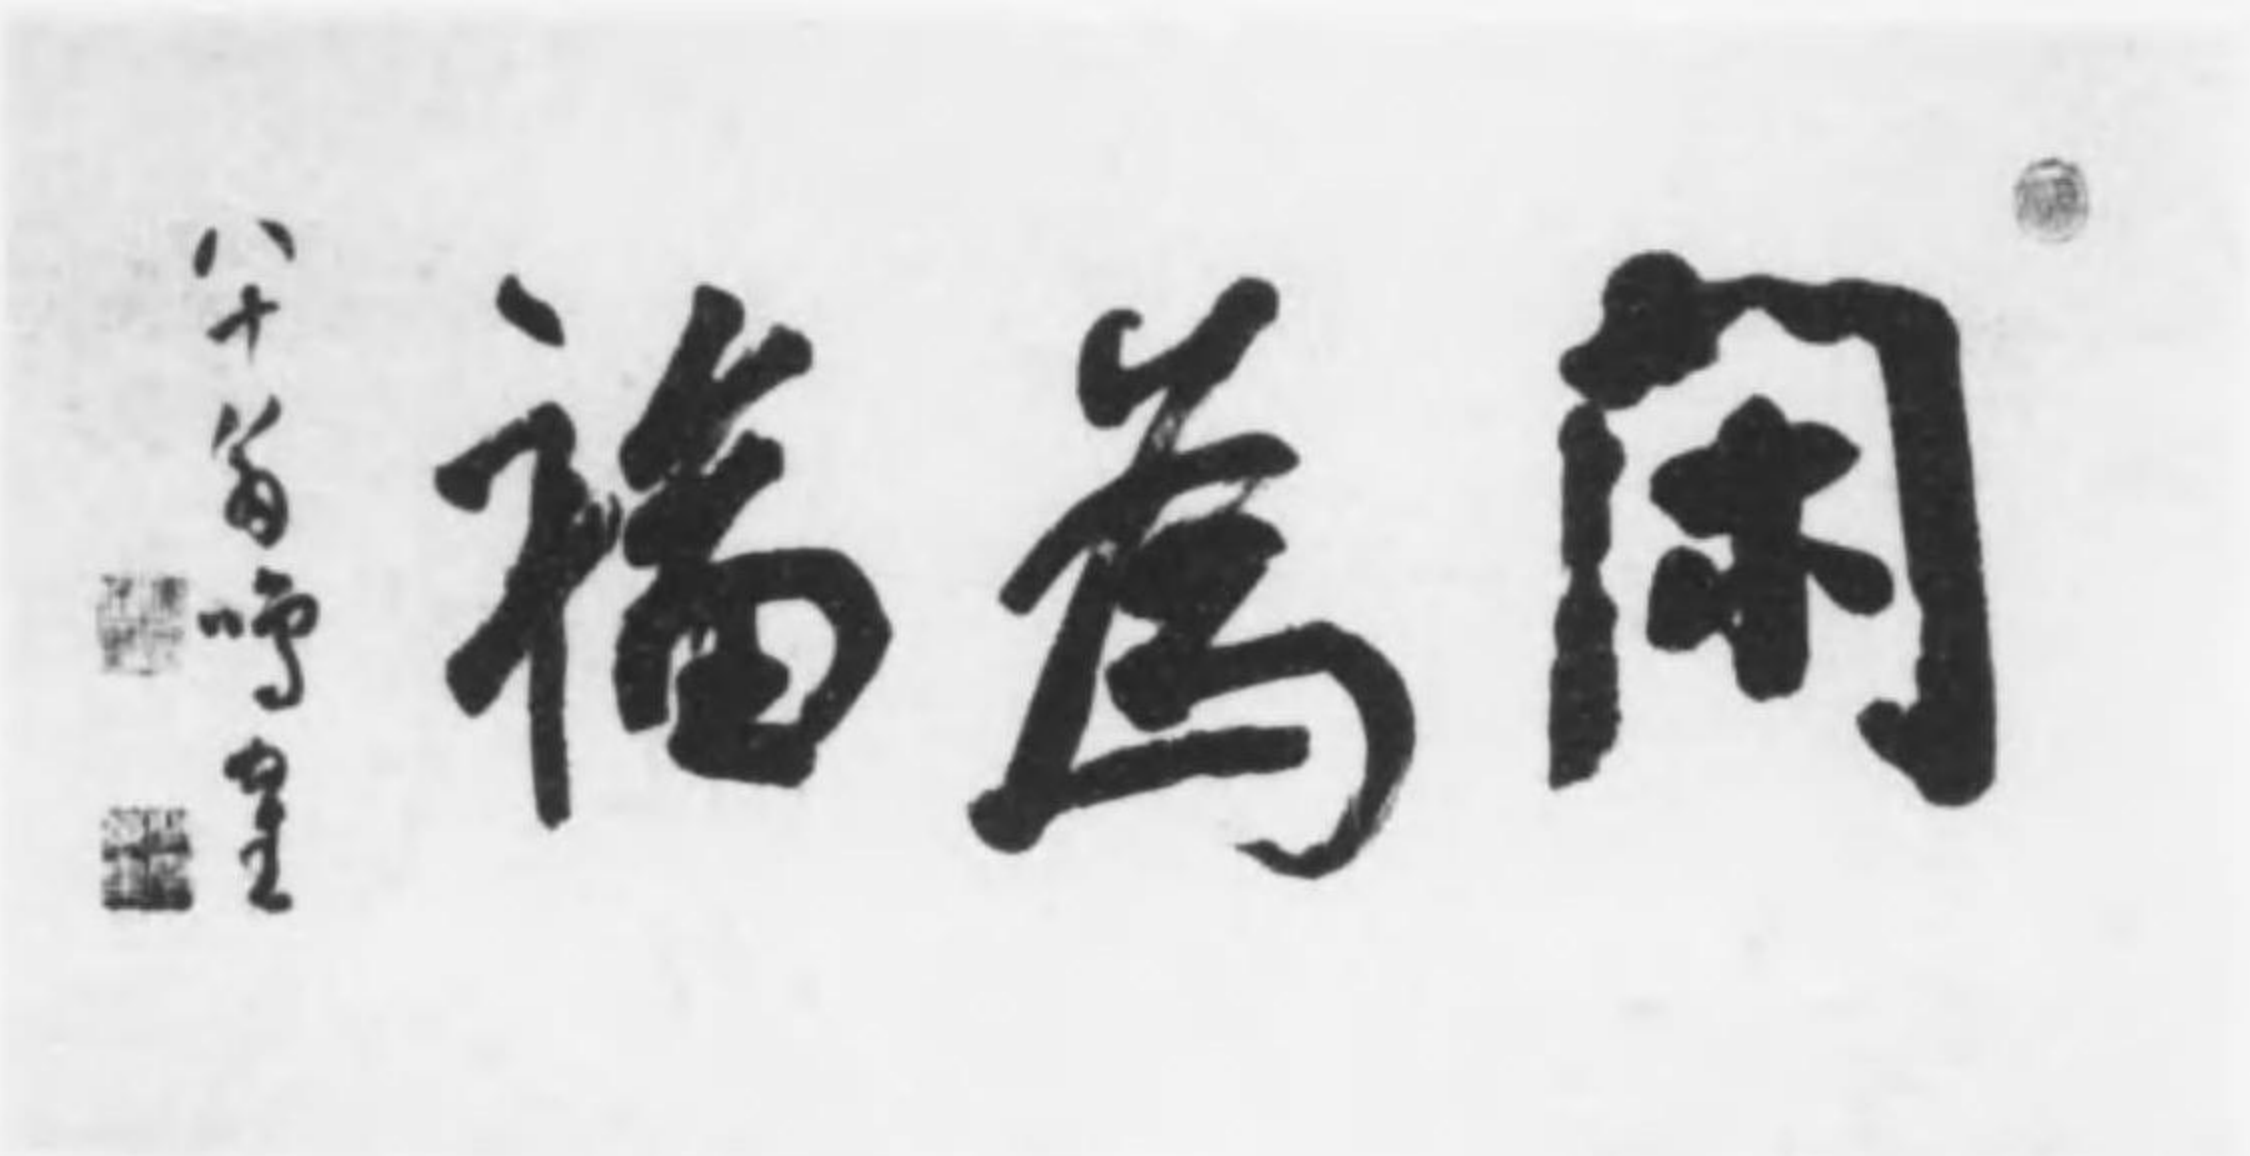 閑為福
八十翁鳴皇